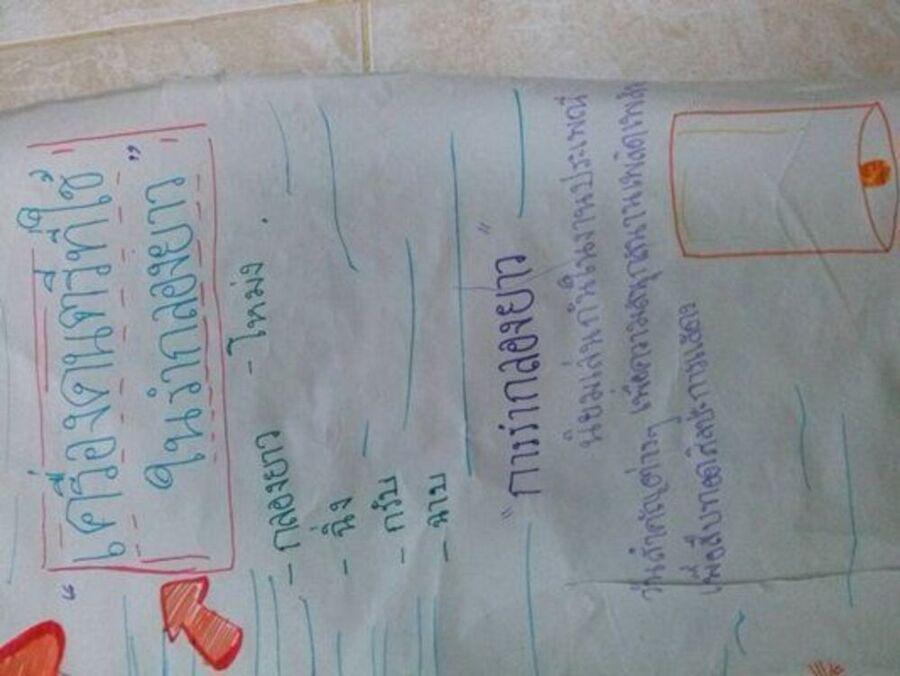 "เครื่องดนตรีที่ใช้
ในรำกลองยาว"
- กลองยาว - โหม่ง
- ฉิ่ง
- กรับ
- ฉาบ
"การรำกลองยาว"
นิยมเล่นกันในงานประเพณี
วันสำคัญต่างๆ เพื่อความสนุกสนานเพลิดเพลิน
เพื่อสืบทอดศิลปะการแสดง